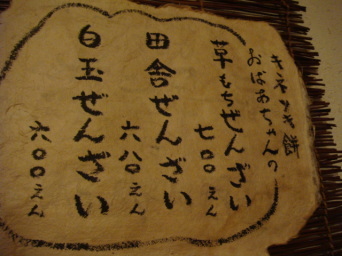 おばあちゃんの
草もちぜんざい
七〇〇えん
田舎ぜんざい
六八〇えん
白玉ぜんざい
六〇〇えん